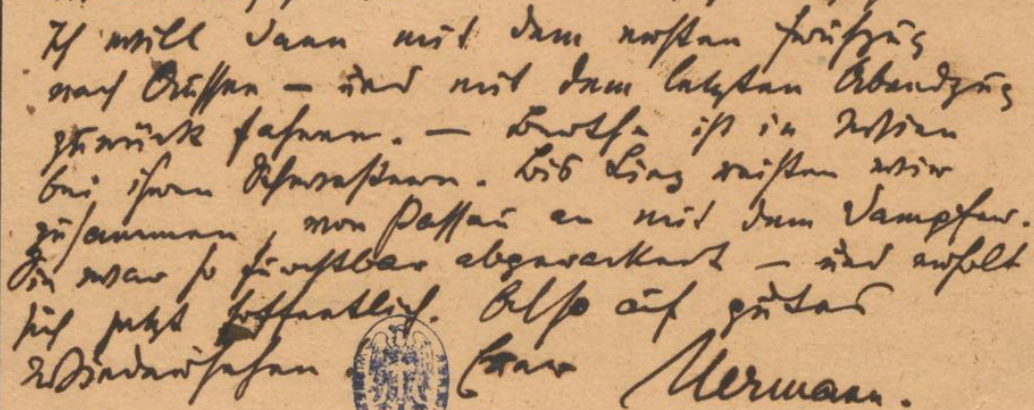 Ich will dann mit dem ersten Frühzug
nach Aussee – und mit dem letzten Abendzug
zurück fahren. – Bertha ist in Wien
bei ihren Schwestern. Bis Linz reisten wir
zusammen, von Passau an mit dem Dampfer.
Sie war so furchtbar abgerackert – und erholt
sich jetzt hoffentlich. Also auf gutes
Wiedersehen. Euer Hermann.